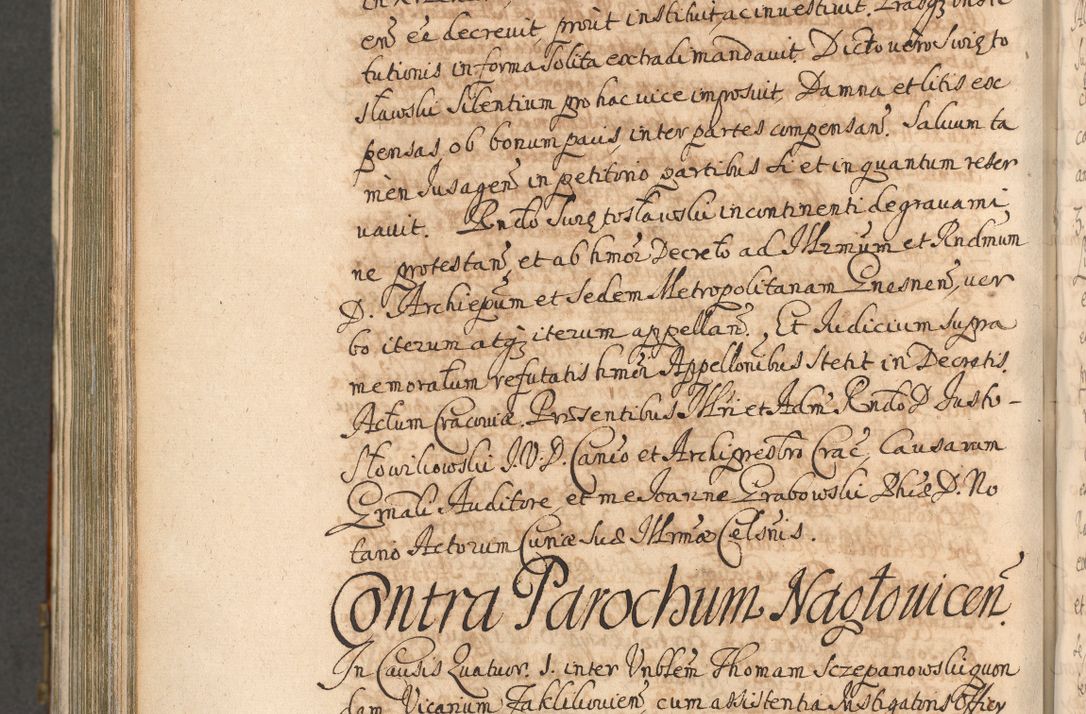 en̄ eē decrevit, prout instituit, ac investivit. Literasq3 insti
tutionis in forma solita extradi mandavit. Dicto vero Swięto
sławski Silentium pro hac vice imposuit, Damna et litis ex
pensas ob bonum pacis, inter partes compensan̄. Salvum ta
men Jus agen̄ in petitorio partibus si et in quantum reser
vavit. Rndo Swiętosławski incontinenti de gravami
ne protestan̄ et ab hmōi Decreto ad Illrmum et Rndmum
D. Archiepum et Sedem Metropolitanam Gnesnen̄, ver
bo iterum atq3 iterum appellan̄. Et Judicium supra
memoratum refutatis hmōi Appellonibus stetit in Decretis.
Actum Cracoviæ. Præsentibus Illri et Adm̄ Rndo D. Justo
Słowikowski J.V.D. Canco et Archipresbro Crac̄, Causarum
Gmali Auditore, et me Joanne Grabowski Phiæ D. No
tario Actorum Curiæ Suæ Illrmæ Celsnis.
Contra Parochum Nagłovicen̄.
In Causis Quatuor. 1. inter Vnblem Thomam Sczepanowski quon
dam Vicarium cum assistentia Instigatoris Officy